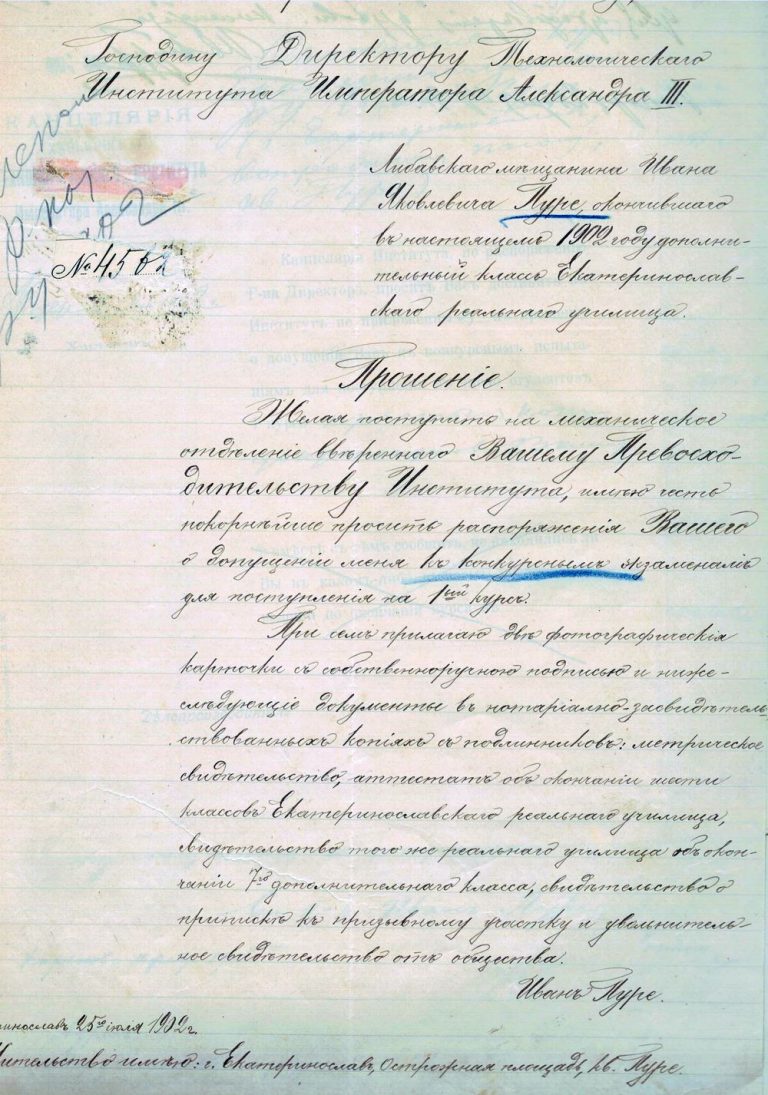 Господину Директору Технологическаго
Института Императора Александра III.
КАНЦЕЛЯРІЯ
Либавскаго мѣщанина Ивана
Яковлевича Пуре, окончившаго
въ настоящемъ 1902 году дополни-
тельный классъ Екатеринослав-
скаго реальнаго училища.
№ 4502
Прошеніе.
Желая поступить на механическое
отдѣленіе ввѣреннаго Вашему Превосхо-
дительству Института, имѣю честь
покорнѣйше просить распоряженія Вашего
о допущеніи меня къ конкурснымъ экзаменамъ
для поступленія на 1ый курсъ.
При семъ прилагаю двѣ фотографическія
карточки съ собственноручною подписью и ниже-
слѣдующіе документы въ нотаріально-засвидѣтель-
ствованныхъ копіяхъ съ подлинниковъ: метрическое
свидѣтельство, аттестатъ объ окончаніи шести
классовъ Екатеринославскаго реальнаго училища,
свидѣтельство того же реальнаго училища объ окон-
чаніи 7го дополнительнаго класса, свидѣтельство о
припискѣ къ призывному участку и увольнитель-
ное свидѣтельство отъ общества.
Иванъ Пуре.
ринославъ 25го іюля 1902 г.
ительство имѣю: г. Екатеринославъ, Острожная площадь, кв. Пуре.